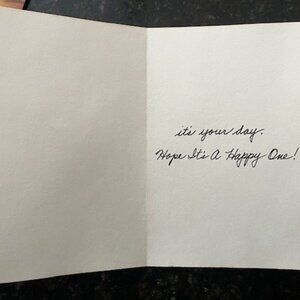 it's your day.
Hope It's A Happy One!